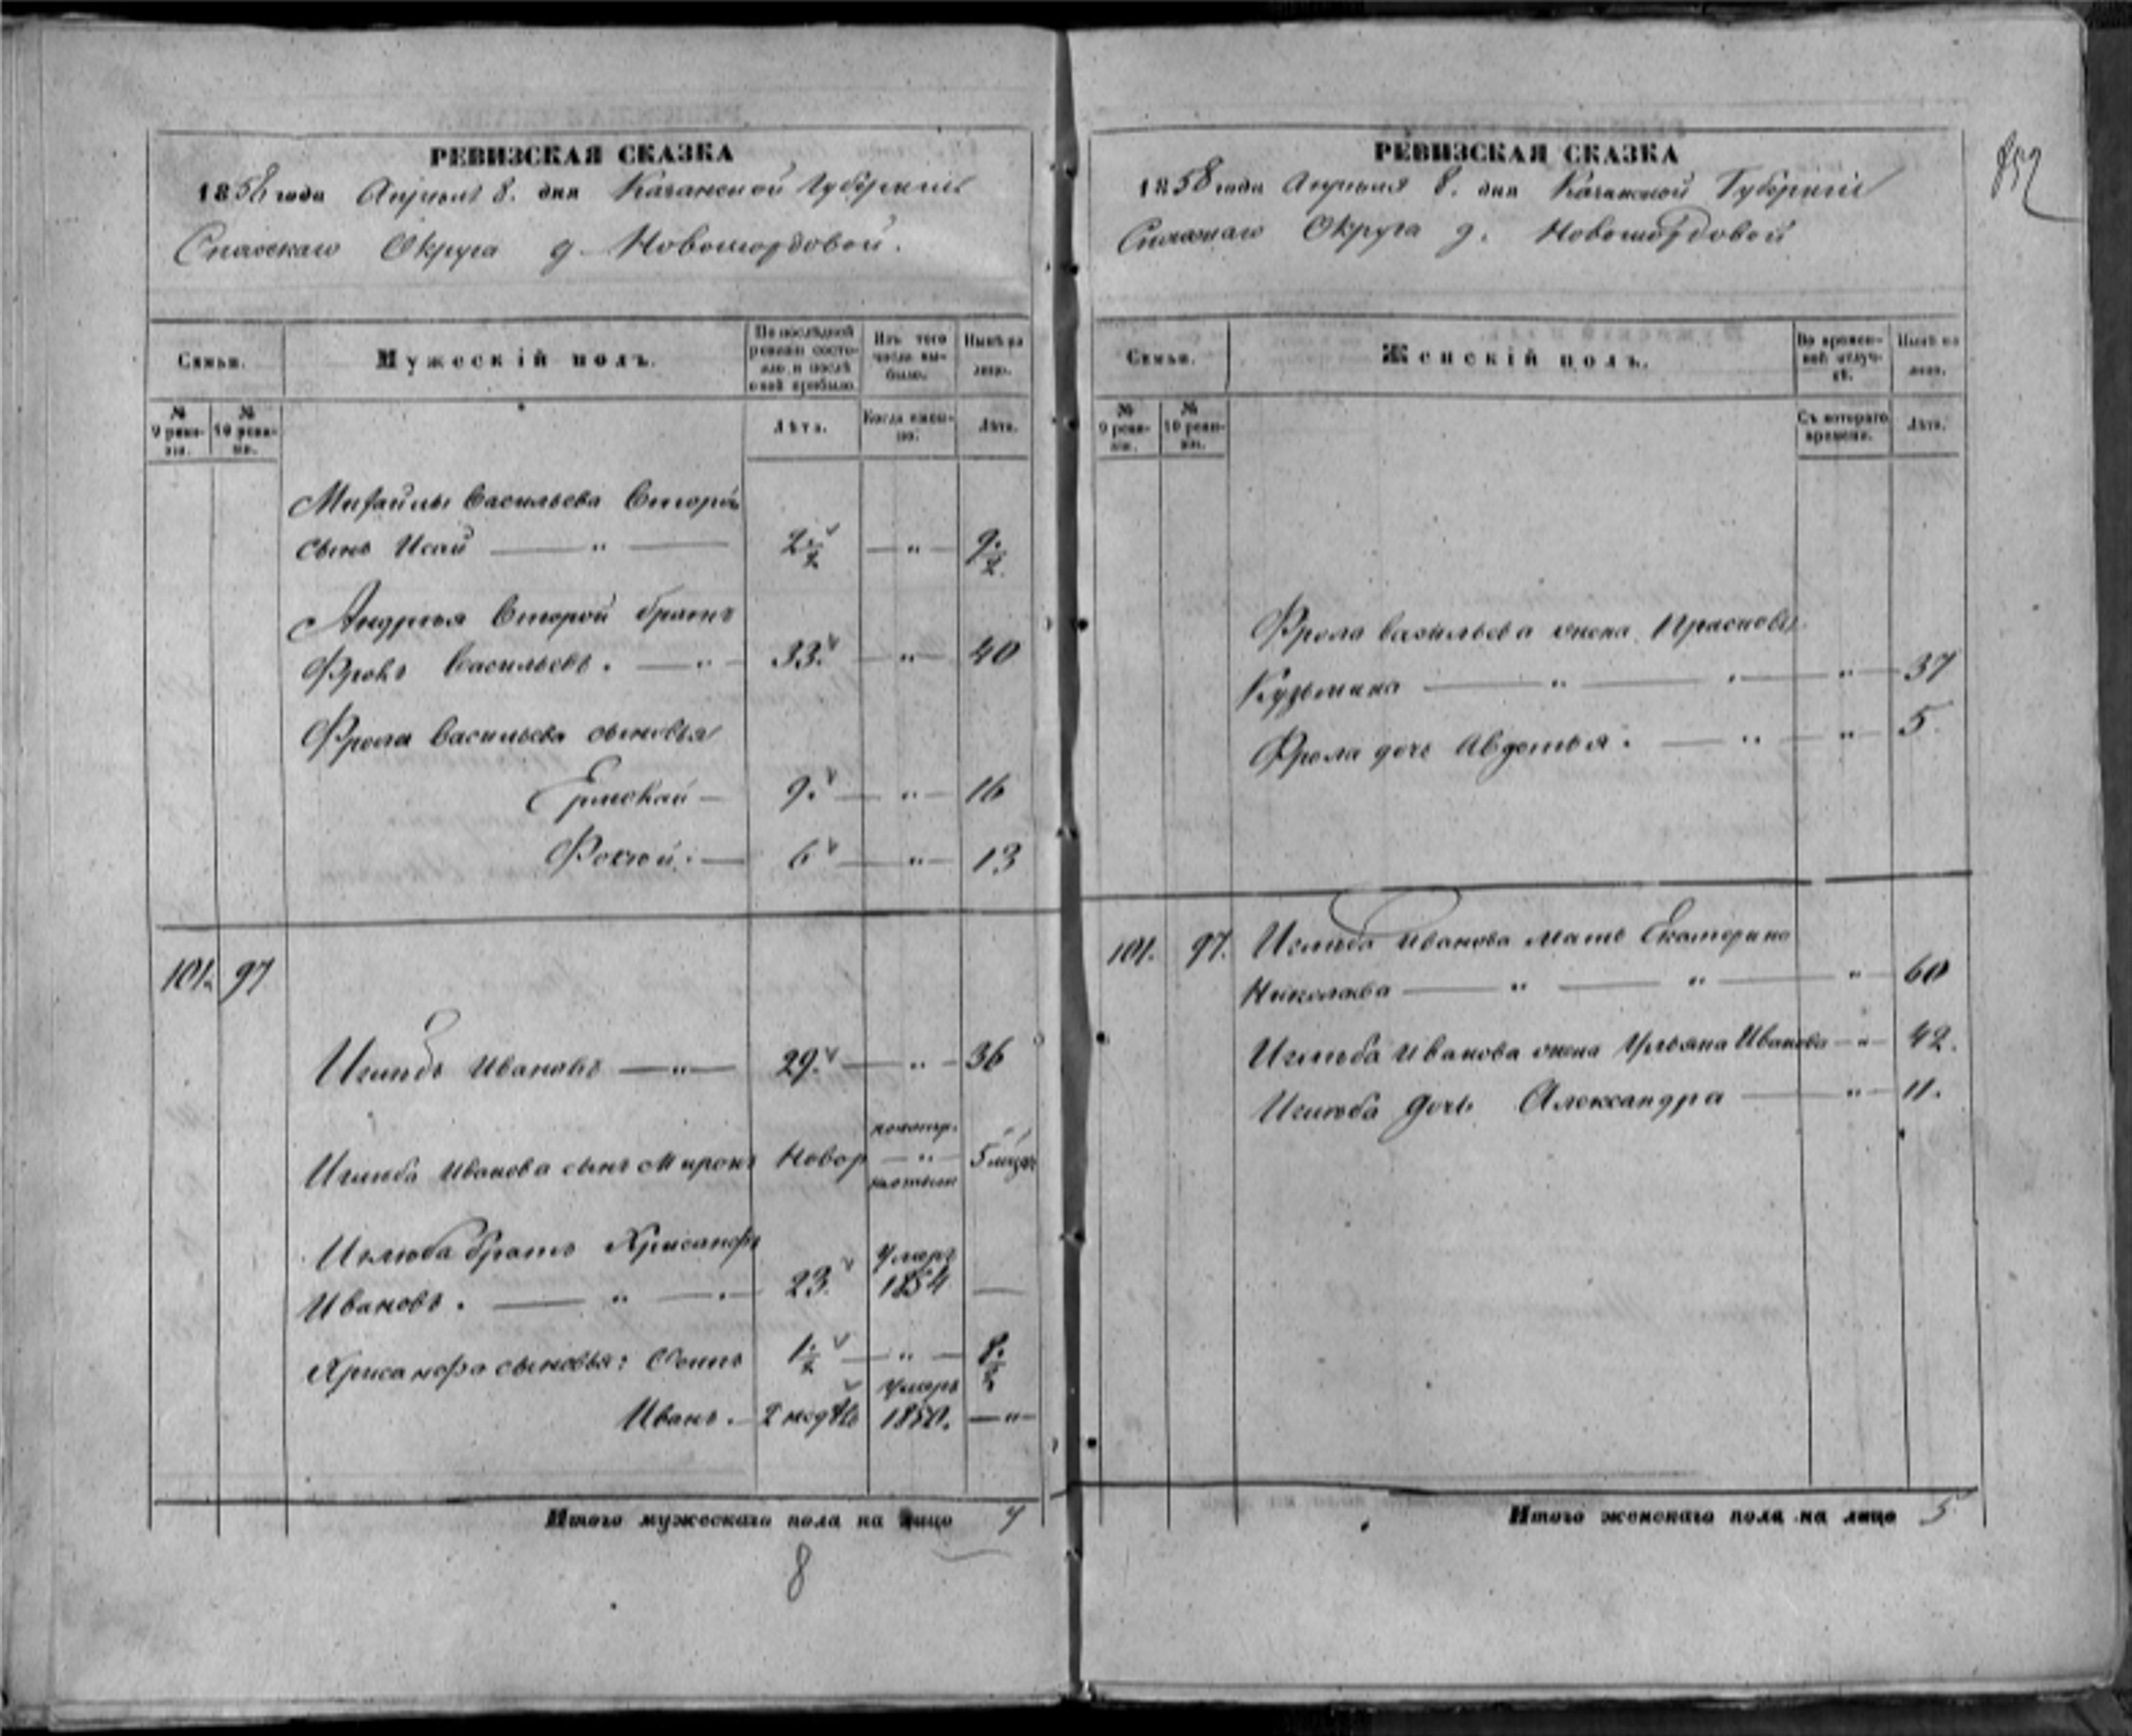 РЕВИЗСКАЯ СКАЗКА
1858 года Апреля 8. дня Казанской Губернии
Спасскаго Округа д. Новомордовой.
Семьи.
Мужескій полъ.
По послѣдней ревизіи состояло, и послѣ оной прибыло.
Изъ того числа выбыло.
Нынѣ на лицо.
№ 9 ревизіи.
№ 10 ревизіи.
Лѣта.
Когда именно.
Лѣта.
Михайлы Васильева Второй
сынъ Исай — " — 2 ½ — " — 9 ½
Андрея Второй братъ
Фролъ Васильевъ. — " — 33. — " — 40
Фрола Васильева сыновья
Ермолай — 9. — " — 16
Фокей. — 6 — " — 13
101. 97
Иванова — " — 29. — " — 36
Иванова сынъ Миронъ Новор — " — 5 мѣсяц
братъ Хрисанфъ
Ивановъ. — " — 23. Умеръ 1854 —
Хрисанфа сыновья: 1 ½ — " — 8 ½
Иванъ. — 2 недѣль Умеръ 1850. — " —
Итого мужескаго пола на лицо 7
8
РЕВИЗСКАЯ СКАЗКА
852
1858 года Апреля 8. дня Казанской Губерніи
Спаскаго Округа д. Новомордовой
Семьи.
Женскій полъ.
Во временной отлучкѣ.
Нынѣ на лицо.
№ 9 ревизіи.
№ 10 ревизіи.
Съ котораго времени.
Лѣта.
Фрола Васильева жена
Кузьмина — " — " — 37
Фрола дочь Авдотья. — " — " — 5.
101. 97. Иванова мать Екатерина
Николаева — " — " — " — 60
Иванова жена Ульяна Иванова — " — 42.
дочь Александра — " — 11.
Итого женскаго пола на лицо 5